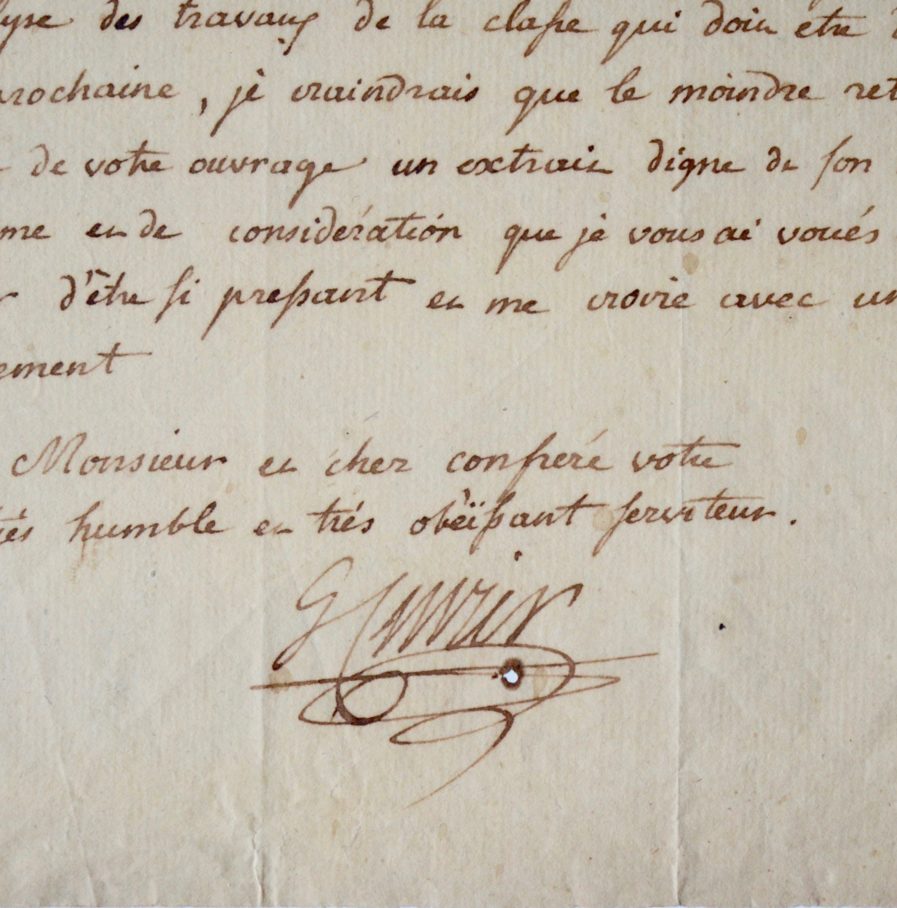 lyse des travaux de la classe qui doit etre
prochaine, je craindrais que le moindre ret
de votre ouvrage un extrait digne de son
me et de considération que je vous ai voués
d'être si pressant et me croire avec un
ement
Monsieur et cher confrere votre
très humble et très obeïssant serviteur.
G Cuvier